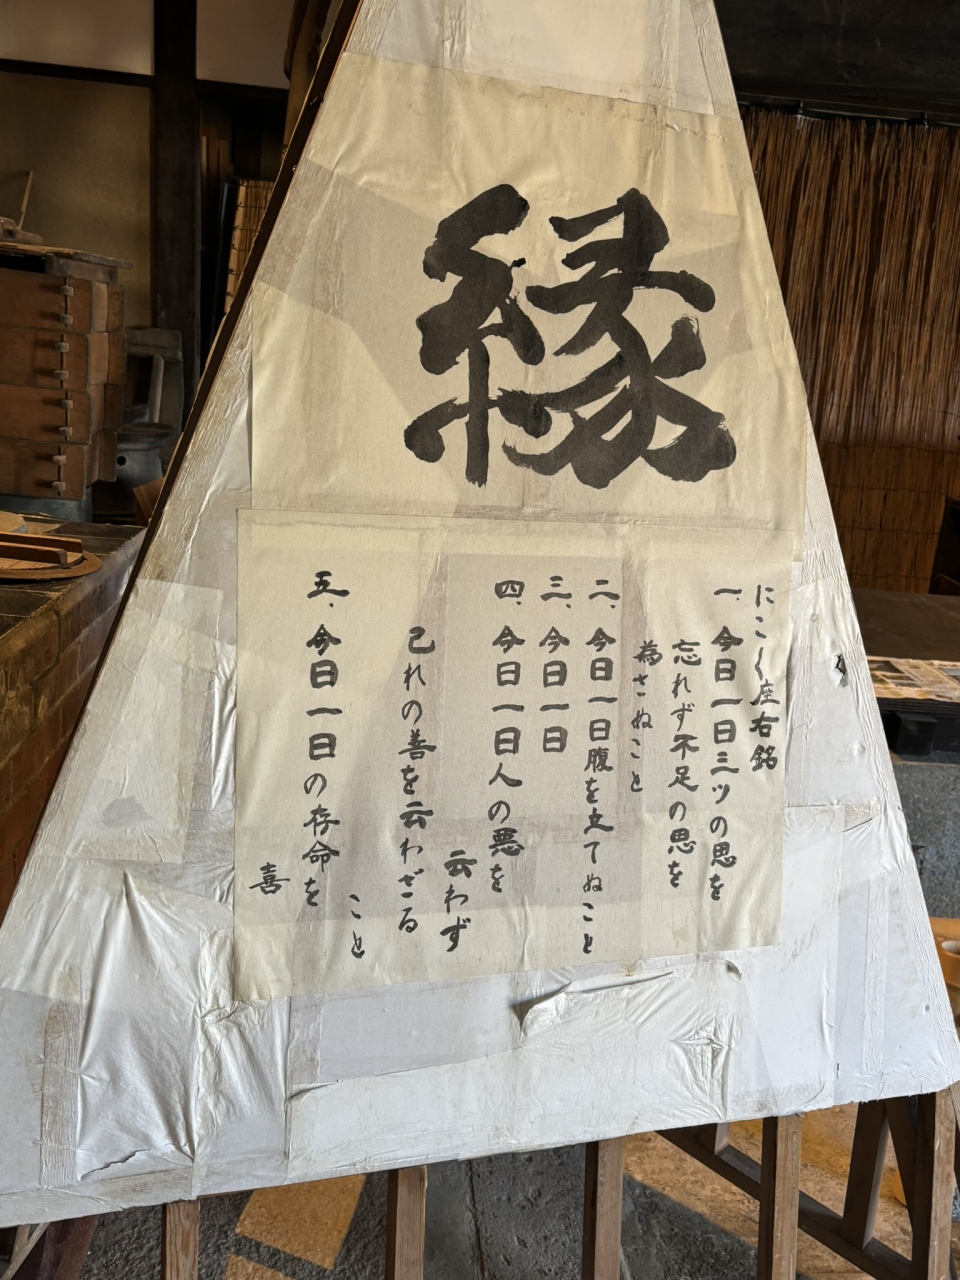 縁
にこく座右銘
一、今日一日三ツの恩を
忘れず不足の思を
為さぬこと
二、今日一日腹を立てぬこと
三、今日一日
四、今日一日人の悪を
云わず
己れの善を云わざる
こと
五、今日一日の存命を
喜